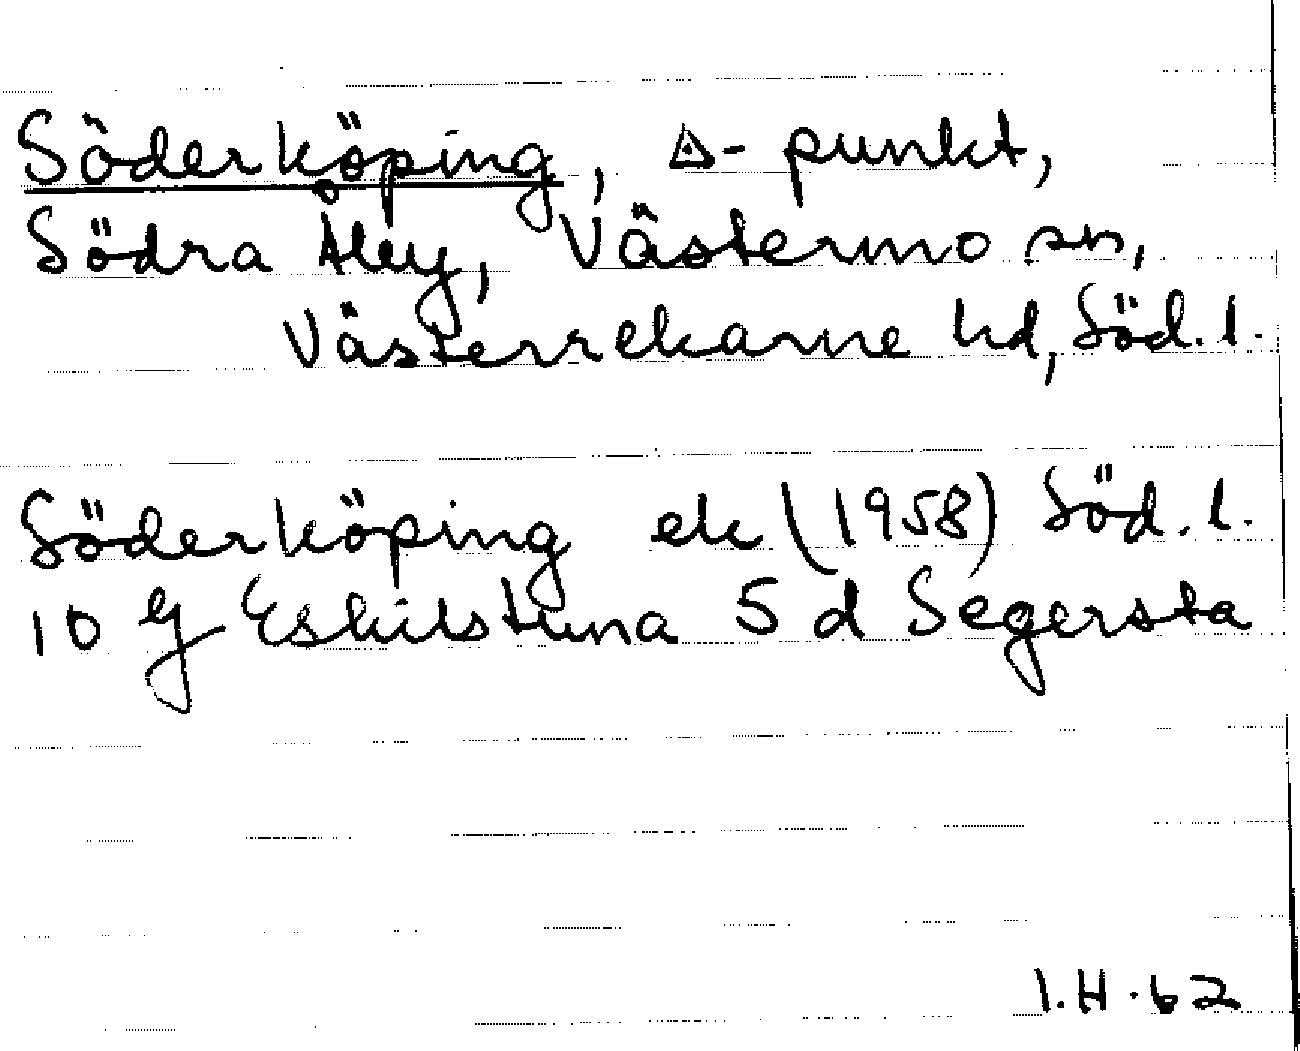 Söderköping, ◬-punkt,
Södra Åby, Västermo sn,
Västerrekarne hd, Söd. l.
Söderköping ek (1958) Söd. l.
10 G Eskilstuna 5 d Segersta
I.H. 62